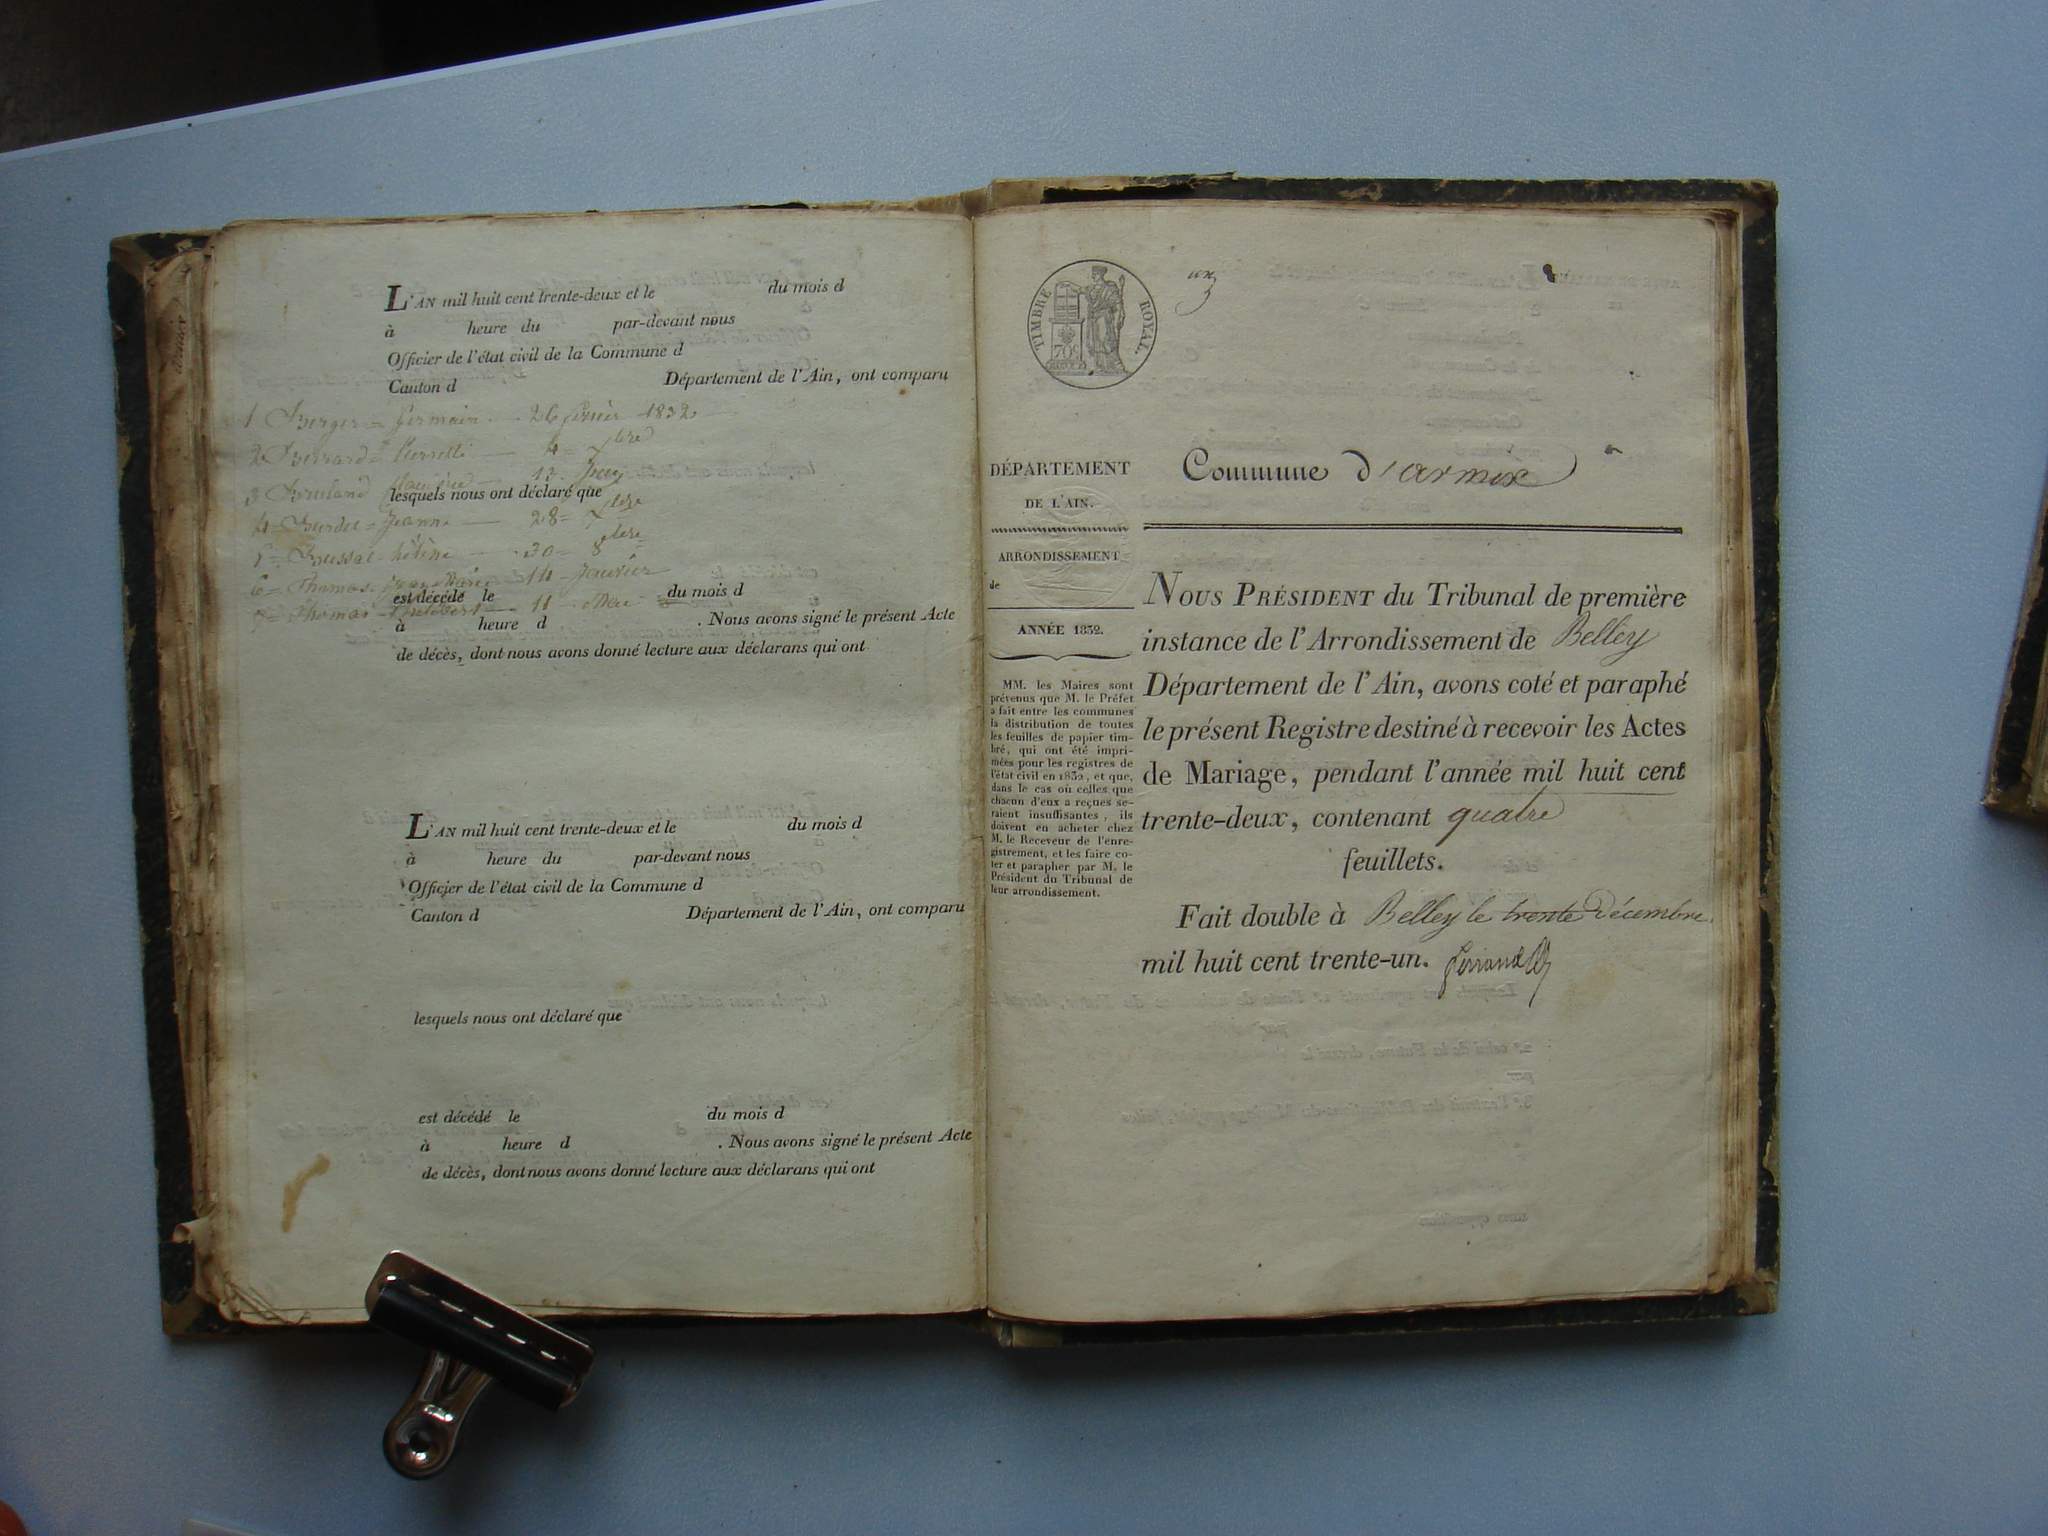 L'AN mil huit cent trente-deux et le du mois d
à heure du par-devant nous
Officier de l'état civil de la Commune d
Canton d Département de l'Ain, ont comparu
1 Berger = Germain 26 février 1832
2 Berrard = Pierrette 4 = 7bre
3 17
lesquels nous ont déclaré que
4 = Burdet = Jeanne 28 = 7bre
5 = hélène 30 = 8bre
6 = Thomas = Jean Marie 14 Janvier
est décédé le du mois d
7 = Thomas 11
à heure d . Nous avons signé le présent Acte
de décès, dont nous avons donné lecture aux déclarans qui ont
L'AN mil huit cent trente-deux et le du mois d
à heure du par-devant nous
Officier de l'état civil de la Commune d
Canton d Département de l'Ain, ont comparu
lesquels nous ont déclaré que
est décédé le du mois d
à heure d . Nous avons signé le présent Acte
de décès, dont nous avons donné lecture aux déclarans qui ont
TIMBRE ROYAL.
un
DÉPARTEMENT
DE L'AIN.
ARRONDISSEMENT
de
ANNÉE 1832.
MM. les Maires sont
prévenus que M. le Préfet
a fait entre les communes
la distribution de toutes
les feuilles de papier tim-
bré, qui ont été impri-
mées pour les registres de
l'état civil en 1832, et que,
dans le cas où celles que
chacun d'eux a reçues se-
raient insuffisantes, ils
doivent en acheter chez
M. le Receveur de l'enre-
gistrement, et les faire co-
ter et parapher par M. le
Président du Tribunal de
leur arrondissement.
Commune d'armix
NOUS PRÉSIDENT du Tribunal de première
instance de l'Arrondissement de Belley
Département de l'Ain, avons coté et paraphé
le présent Registre destiné à recevoir les Actes
de Mariage, pendant l'année mil huit cent
trente-deux, contenant quatre
feuillets.
Fait double à Belley le trente Décembre
mil huit cent trente-un.